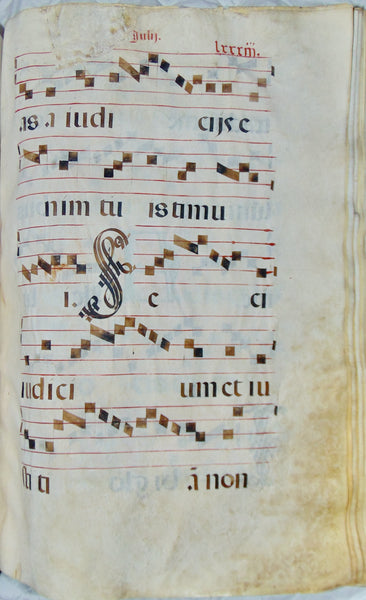 Julij.
lxxxiij.
as a iudi cijs e
nim tu is timu
i. F e ci
iudici um et iu
sti ci ā non